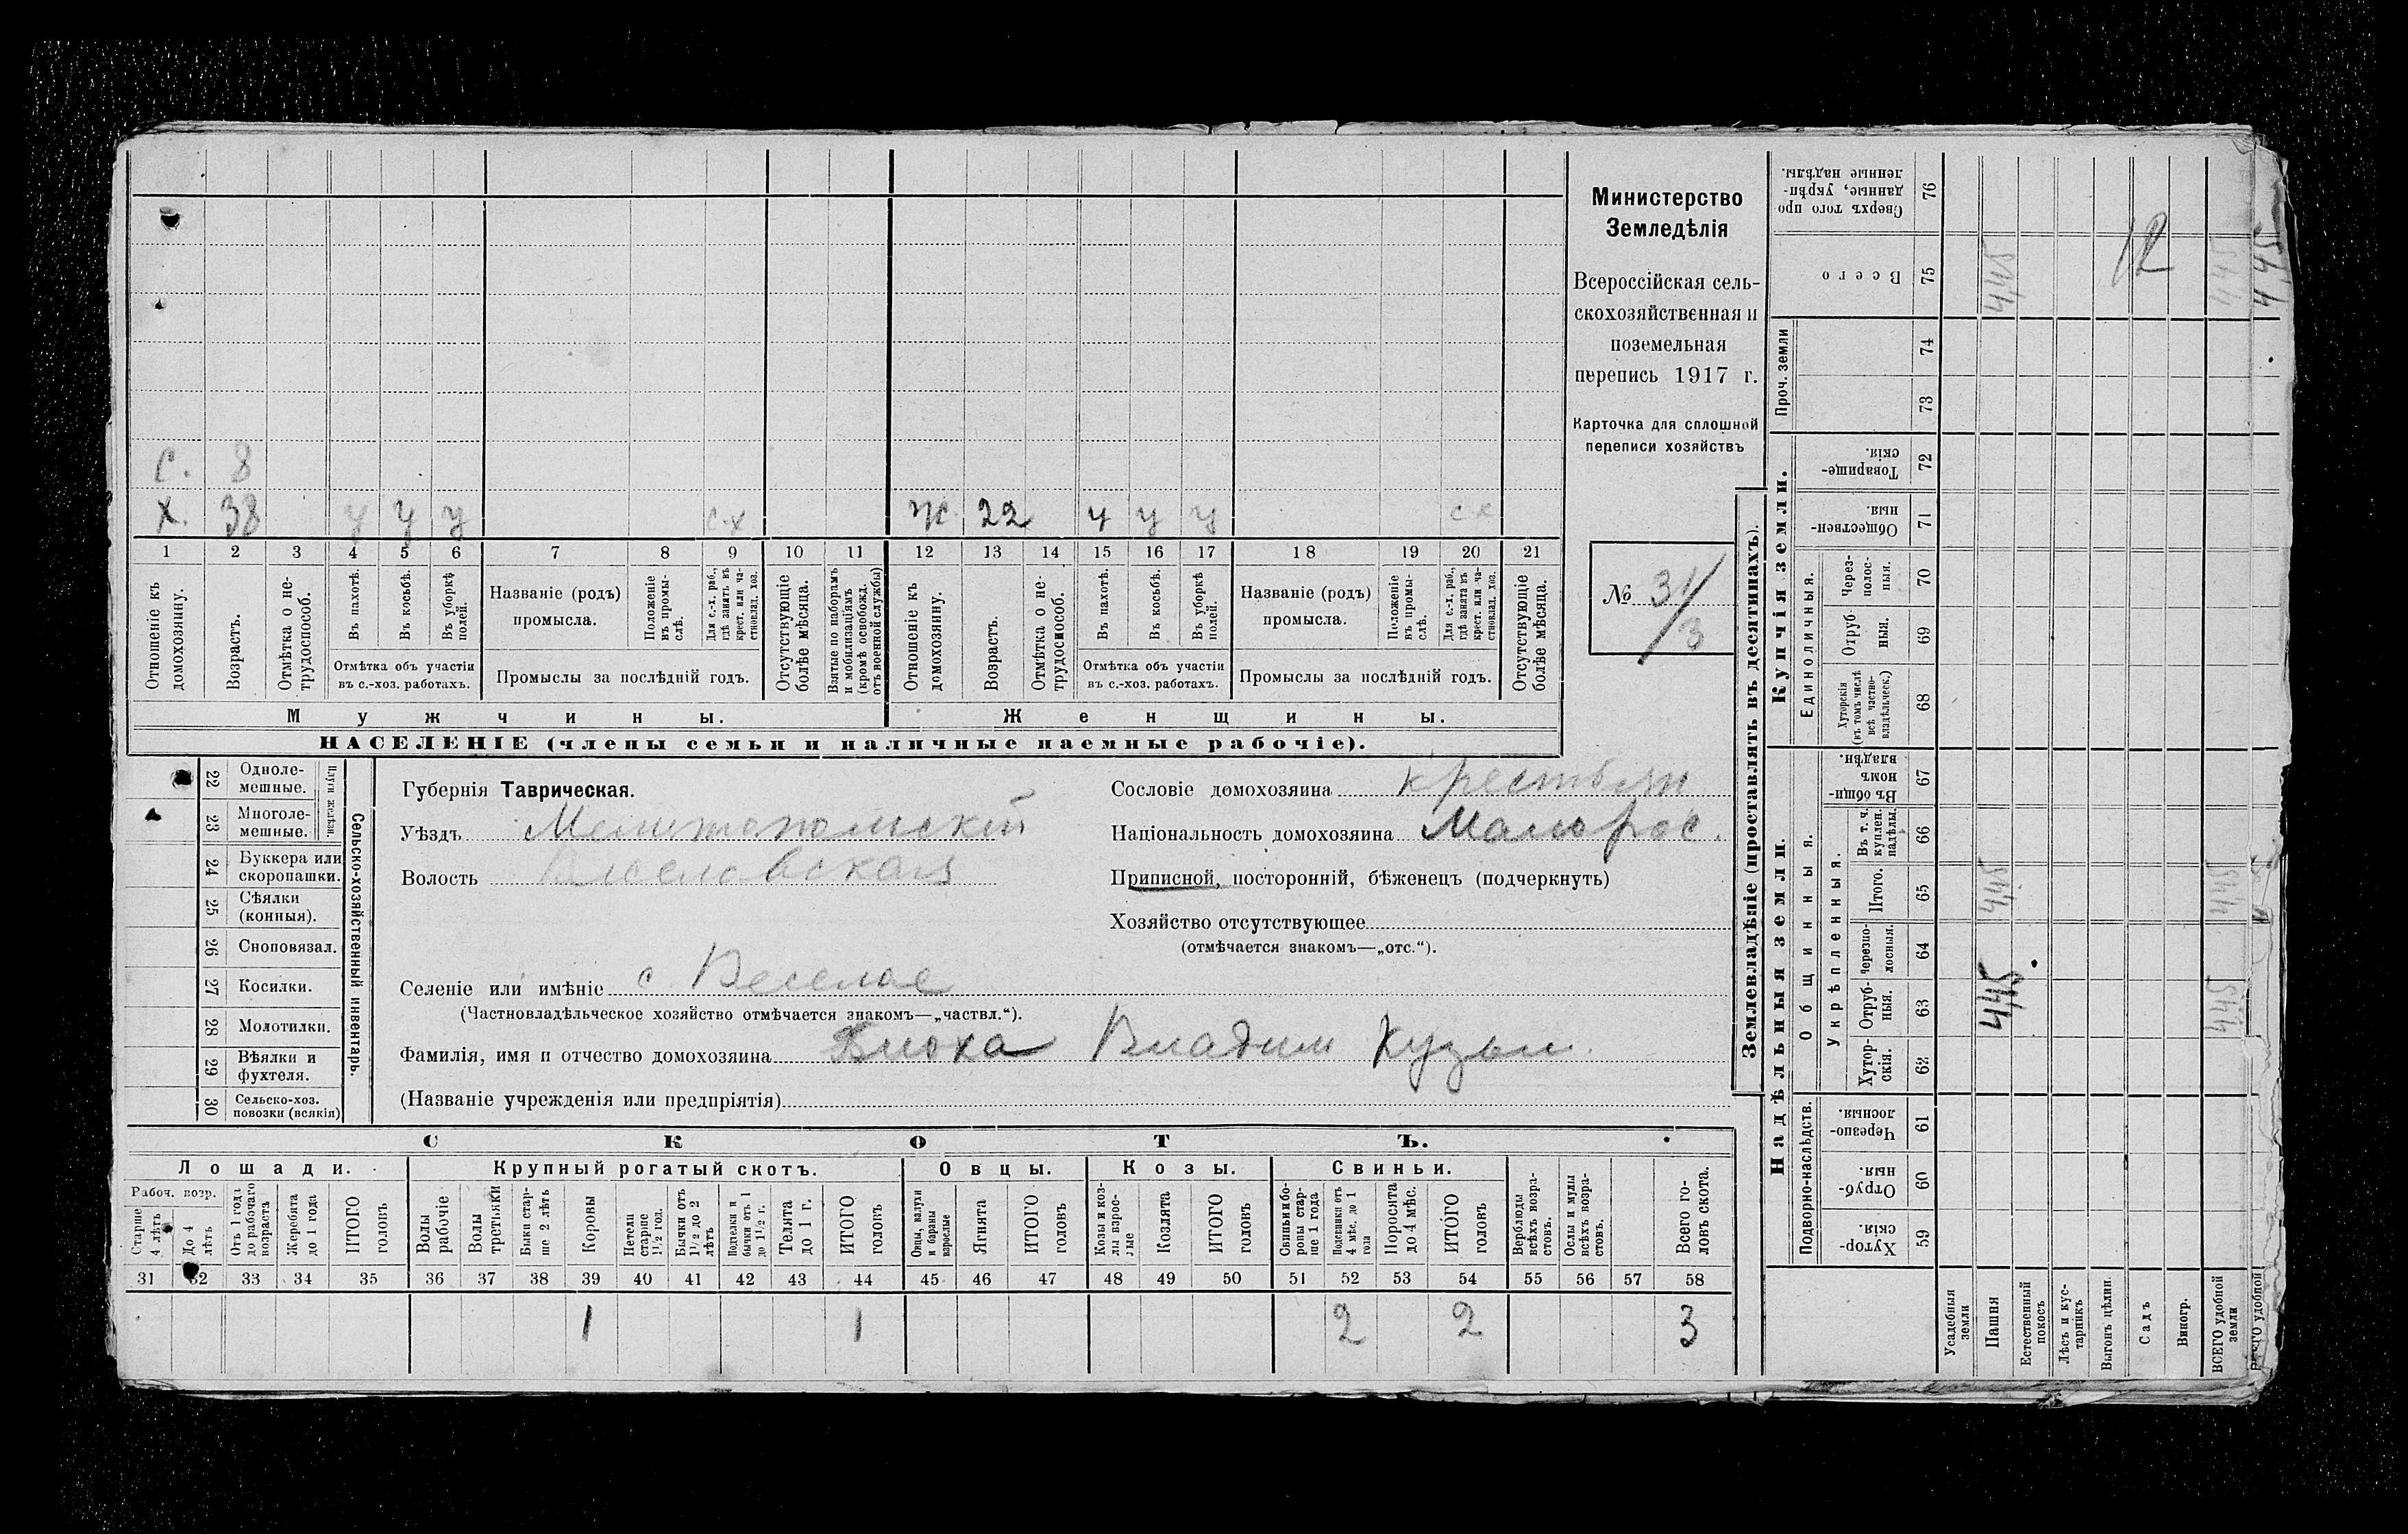 с. 8
х. 38 у у у с.х ж. 22 у у у с х
1 2 3 4 5 6 7 8 9 10 11 12 13 14 15 16 17 18 19 20 21
Отношеніе къ домохозяину.
Возрастъ.
Отмѣтка о не-трудоспособ.
Въ пахотѣ.
Въ косьбѣ.
Въ уборкѣ полей.
Отмѣтка объ участіи
въ с.-хоз. работахъ.
Названіе (родъ)
промысла.
Положеніе въ промы-слѣ.
Для с.-х. раб., гдѣ занятъ въ крест. или ча-стновлад. хоз.
Промыслы за послѣдній годъ.
Отсутствующіе болѣе мѣсяца.
Взятые по наборамъ и мобилизаціямъ (кромѣ освобожд. отъ военной службы)
Отношеніе къ домохозяину.
Возрастъ.
Отмѣтка о не-трудоспособ.
Въ пахотѣ.
Въ косьбѣ.
Въ уборкѣ полей.
Отмѣтка объ участіи
въ с.-хоз. работахъ.
Названіе (родъ)
промысла.
Положеніе въ промы-слѣ.
Для с.-х. раб., гдѣ занята въ крест. или ча-стновлад. хоз.
Промыслы за послѣдній годъ.
Отсутствующіе болѣе мѣсяца.
Мужчины. Женщины.
НАСЕЛЕНІЕ (члены семьи и наличные наемные рабочіе).
Министерство
Земледѣлія
Всероссійская сель-
скохозяйственная и
поземельная
перепись 1917 г.
Карточка для сплошной
переписи хозяйствъ
№ 31/3
Сельско-хозяйственный инвентарь.
Плуги желѣзн.
22 Одноле-мешные.
23 Многоле-мешные.
24 Буккера или скоропашки.
25 Сѣялки (конныя).
26 Сноповязал.
27 Косилки.
28 Молотилки.
29 Вѣялки и фухтеля.
30 Сельско-хоз. повозки (всякія)
Губернія Таврическая.
Уѣздъ Мелитопольскій
Волость Веселовская
Сословіе домохозяина крестьян
Національность домохозяина Малорос.
Приписной, посторонній, бѣженецъ (подчеркнуть)
Хозяйство отсутствующее
(отмѣчается знакомъ—„отс.“).
Селеніе или имѣніе с Веселое
(Частновладѣльческое хозяйство отмѣчается знакомъ—„частвл.“).
Фамилія, имя и отчество домохозяина Блоха Владим Кузьм.
(Названіе учрежденія или предпріятія)
СКОТЪ.
Лошади. Крупный рогатый скотъ. Овцы. Козы. Свиньи.
Рабоч. возр.
Старше 4 лѣтъ
До 4 лѣтъ
Отъ 1 года до рабочаго возраста
Жеребята до 1 года
ИТОГО головъ
Волы рабочіе
Волы третьяки
Быки стар-ше 2 лѣтъ
Коровы
Нетели старше 1½ год.
Бычки отъ 1½ до 2 лѣтъ
Подтелки и бычки отъ 1 до 1½ г.
Телята до 1 г.
ИТОГО головъ
Овцы, валухи и бараны взрослые
Ягнята
ИТОГО головъ
Козы и коз-лы взрос-лые
Козлята
ИТОГО головъ
Свиньи и бо-ровы стар-ше 1 года
Подсвинки отъ 4 мѣс. до 1 года
Поросята до 4 мѣс.
ИТОГО головъ
Верблюды всѣхъ возра-стовъ.
Ослы и мулы всѣхъ возра-стовъ.
Всего го-ловъ скота.
31 32 33 34 35 36 37 38 39 40 41 42 43 44 45 46 47 48 49 50 51 52 53 54 55 56 57 58
1 1 2 2 3
Землевладѣніе (проставлять въ десятинахъ).
Надѣльныя земли. Купчія земли.
Проч. земли
Подворно-наслѣдств.
Общинныя.
Укрѣпленныя.
Единоличныя.
Хутор-скія. 59
Отруб-ныя. 60
Черезпо-лосныя. 61
Хутор-скія. 62
Отруб-ныя. 63
Черезпо-лосныя. 64
Итого. 65
Въ т. ч. куплен. надѣлы. 66
Въ общи-номъ владѣн. 67
Хуторскія (въ томъ числѣ всѣ частно-владѣльческ.) 68
Отруб-ныя. 69
Через-полос-ныя. 70
Обществен-ныя. 71
Товарище-скія. 72
73
74
Всего 75
Сверхъ того про-данные, укрѣп-ленные надѣлы. 76
Усадебныя земли
Пашня 4,45 4,45 4,45
Естественный покосъ
Лѣсъ и кус-тарникъ
Выгонъ цѣлин.
Садъ
Виногр.
ВСЕГО удобной земли
12